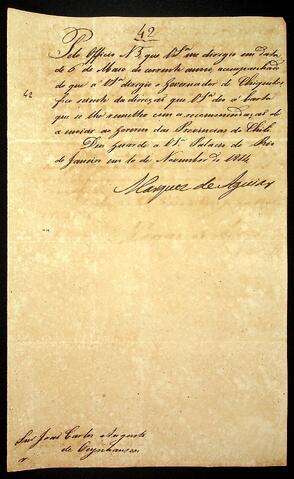 42
Pelo Officio N.3, que V.S.ª me dirigio em data
de 6 de Maio do corrente anno, acompanhado
do que a V.S.ª dirigio o Governador de Chiquitos
42
fico sciente da direcçaõ que V.S.ª deo á carta
que se lhe remetteo com a recommendaçaõ de
a enviar ao Governo das Provincias de Chile
Deos Guarde a V.S.ª Palacio do Rio
de Janeiro em 10 de Novembro de 1814
Marquez de Aguiar
Snr. João Carlos Augusto
de Oeynhausen